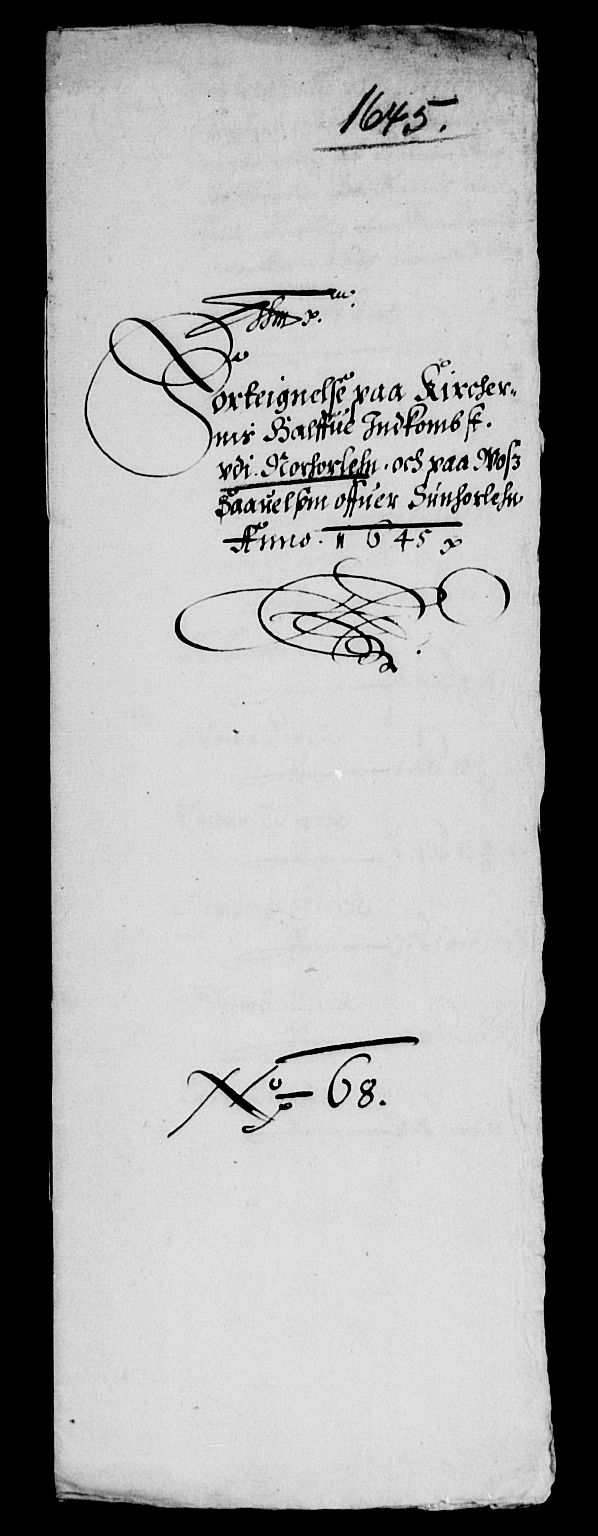 1645.
Forteignelse paa Kircher-
nis Halffue Indkombst.
vdi. Norhorlehn. och paa Wosz
saauelsom offuer Sunhorlehn
Anno. 1645
No 68.